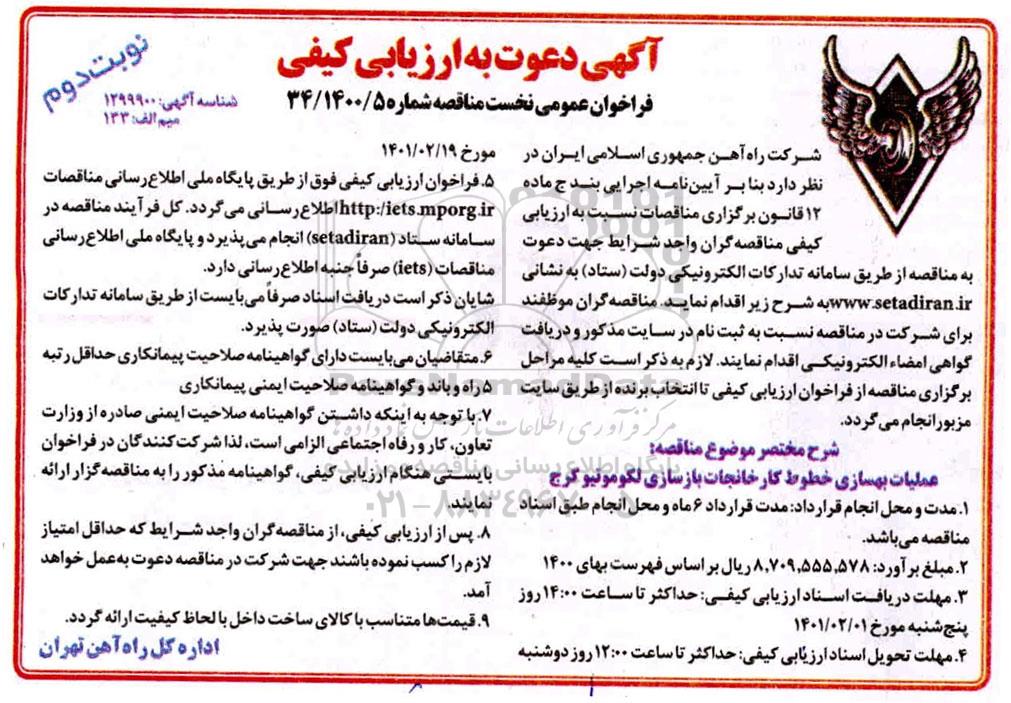 نوبت دوم
آگهی دعوت به ارزیابی کیفی
فراخوان عمومی نخست مناقصه شماره ۳۴/۱۴۰۰/۵
شناسه آگهی: ۱۲۹۹۹۰۰
میم الف: ۱۳۳
شرکت راه آهن جمهوری اسلامی ایران در
نظر دارد بنا بر آیین‌نامه اجرایی بند ج ماده
۱۲ قانون برگزاری مناقصات نسبت به ارزیابی
کیفی مناقصه‌گران واجد شرایط جهت دعوت
به مناقصه از طریق سامانه تدارکات الکترونیکی دولت (ستاد) به نشانی
www.setadiran.ir به شرح زیر اقدام نماید. مناقصه‌گران موظفند
برای شرکت در مناقصه نسبت به ثبت نام در سایت مذکور و دریافت
گواهی امضاء الکترونیکی اقدام نمایند. لازم به ذکر است کلیه مراحل
برگزاری مناقصه از فراخوان ارزیابی کیفی تا انتخاب برنده از طریق سایت
مزبور انجام می گردد.
شرح مختصر موضوع مناقصه:
عملیات بهسازی خطوط کارخانجات بازسازی لکوموتیو کرج
۱. مدت و محل انجام قرارداد: مدت قرارداد ۶ ماه و محل انجام طبق اسناد
مناقصه می‌باشد.
۲. مبلغ برآورد: ۸,۷۰۹,۵۵۵,۵۷۸ ریال بر اساس فهرست بهای ۱۴۰۰
۳. مهلت دریافت اسناد ارزیابی کیفی: حداکثر تا ساعت ۱۴:۰۰ روز
پنج‌شنبه مورخ ۱۴۰۱/۰۲/۰۱
۴. مهلت تحویل اسناد ارزیابی کیفی: حداکثر تا ساعت ۱۲:۰۰ روز دوشنبه
مورخ ۱۴۰۱/۰۲/۱۹
۵. فراخوان ارزیابی کیفی فوق از طریق پایگاه ملی اطلاع رسانی مناقصات
http:/iets.mporg.ir اطلاع رسانی می گردد. کل فرآیند مناقصه در
سامانه ستاد (setadiran) انجام می پذیرد و پایگاه ملی اطلاع رسانی
مناقصات (iets) صرفاً جنبه اطلاع رسانی دارد.
شایان ذکر است دریافت اسناد صرفاً می‌بایست از طریق سامانه تدارکات
الکترونیکی دولت (ستاد) صورت پذیرد.
۶. متقاضیان می‌بایست دارای گواهینامه صلاحیت پیمانکاری حداقل رتبه
۵ راه و باند و گواهینامه صلاحیت ایمنی پیمانکاری
۷. با توجه به اینکه داشتن گواهینامه صلاحیت ایمنی صادره از وزارت
تعاون، کار و رفاه اجتماعی الزامی است، لذا شرکت‌کنندگان در فراخوان
بایستی هنگام ارزیابی کیفی، گواهینامه مذکور را به مناقصه گزار ارائه
نمایند.
۸. پس از ارزیابی کیفی، از مناقصه‌گران واجد شرایط که حداقل امتیاز
لازم را کسب نموده باشند جهت شرکت در مناقصه دعوت به‌عمل خواهد
آمد.
۹. قیمت‌ها متناسب با کالای ساخت داخل با لحاظ کیفیت ارائه گردد.
اداره کل راه آهن تهران
ParsNamadData
مرکز فرآوری اطلاعات پارس نماد داده‌ها
پایگاه اطلاع رسانی مناقصه و مزایده
۰۲۱-۸۸۳۴۹۶۷۰-۵